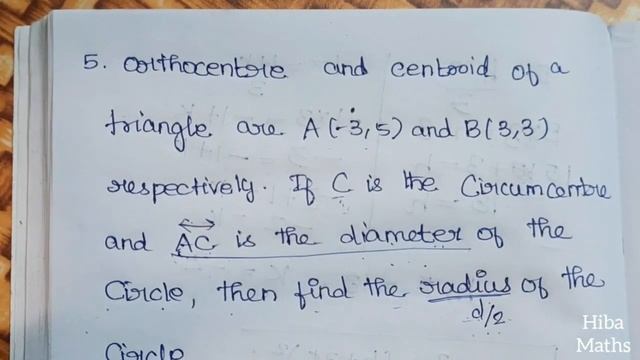 5. Orthocentre and centroid of a
triangle are A(-3,5) and B(3,3)
respectively. If C is the Circumcentre
and AC is the diameter of the
Circle, then find the radius of the
d/2
Circle
Hiba
Maths